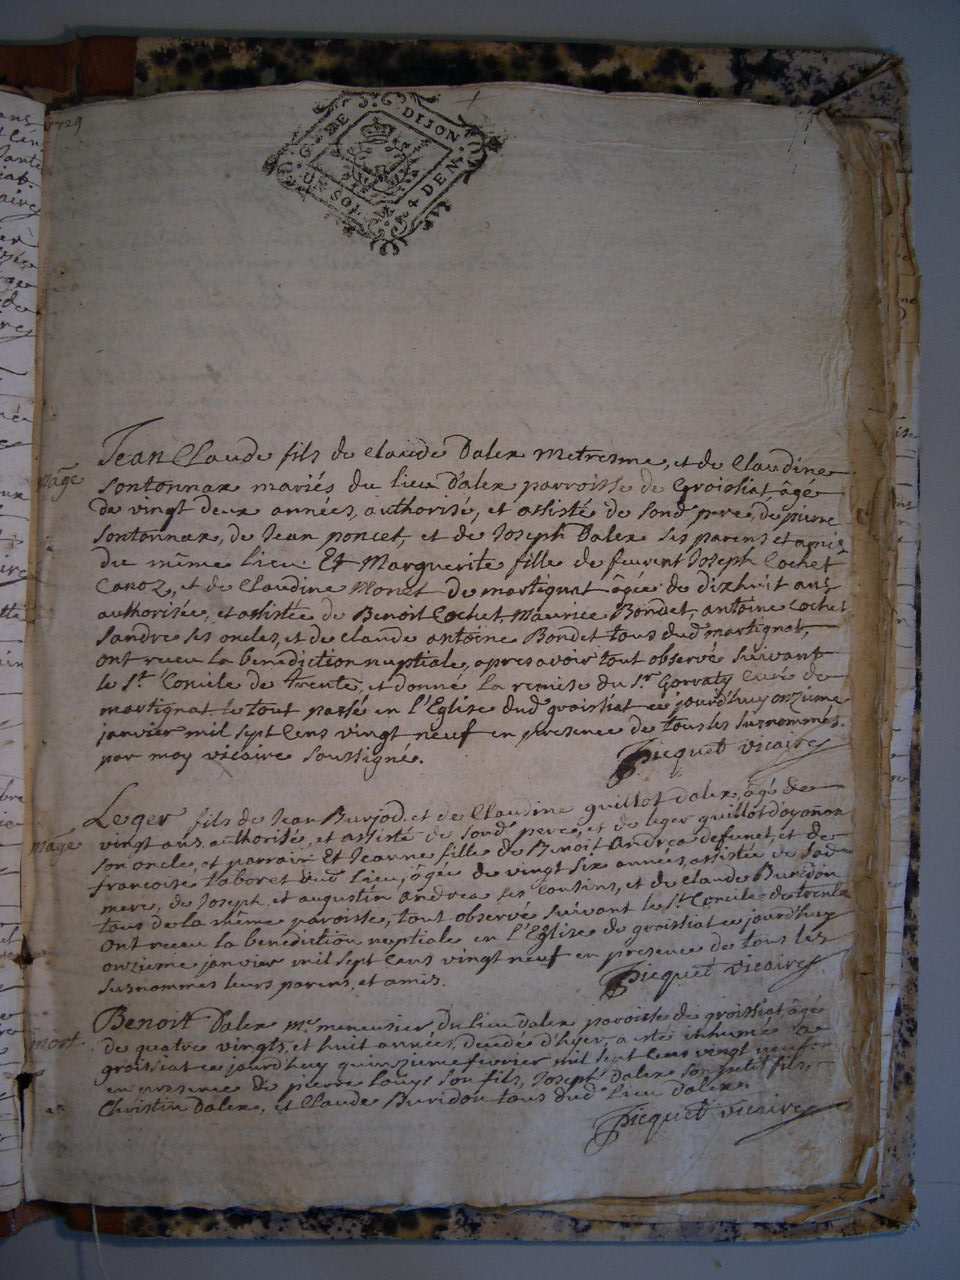 1729
G. DE DIJON
UN SOL 4 DEN.
Jean Claude fils de Claude Dalex metresme, et de Claudine
mãge
Sontonnax mariés du lieu Dalex parroisse de Groissiat, âgé
de vingt deux années, authorisé, et assisté de sond. pere, de pierre
Sontonnax, de Jean poncet, et de Joseph Dalex ses parens et amis
du même lieu Et Marguerite fille de feu Joseph Cochet
Canoz, et de Claudine Monet de martignat âgée de dixhuit ans
authorisée, et assistée de Benoit Cochet, Maurice Bondet, antoine Cochet
Sandre ses oncles, et de Claude antoine Bondet tous dud. martignat,
ont receu la benediction nuptiale, apres avoir tout observé suivant
le St. Concile de trente, et donné la remise du Sr. Gorvaty curé de
martignat le tout passé en l'Eglise dud. groissiat ce jourd'huy onzieme
janvier mil sept cens vingt neuf en presence de tous les susnommés.
par moy vicaire soussigné. picquet vicaire
Leger fils de Jean Burjod, et de Claudine guillot Dalex, âgé de
mãge
vingt ans, authorisé, et assisté de sond. pere, et de leger guillot d'oyonax
son oncle, et parrain Et Jeanne fille de Benoit Andrea defunct, et de
francoise taboret dud. lieu, âgée de vingt six années, assistée de sad.
mere, de Joseph, et augustin andrea ses cousins, et de Claude Buridon
tous de la même paroisse, tout observé suivant le St. Concile de trente
ont receu la benediction nuptiale en l'Eglise de groissiat ce jourd'huy
onzieme janvier mil sept cens vingt neuf en presence de tous les
susnommes leurs parens, et amis. picquet vicaire
Benoit Dalex me. menusier, du lieu Dalex paroisse de groissiat, âgé
mort
de quatre vingts, et huit années, decedé d'hyer, a esté inhumé a
groissiat ce jourd'huy quinzieme fevrier mil sept cens vingt neuf
en presence de pierre Louys son fils, Joseph Dalex son petit fils,
Christin Dalex, et Claude Buridon tous dud. lieu Dalex.
picquet vicaire